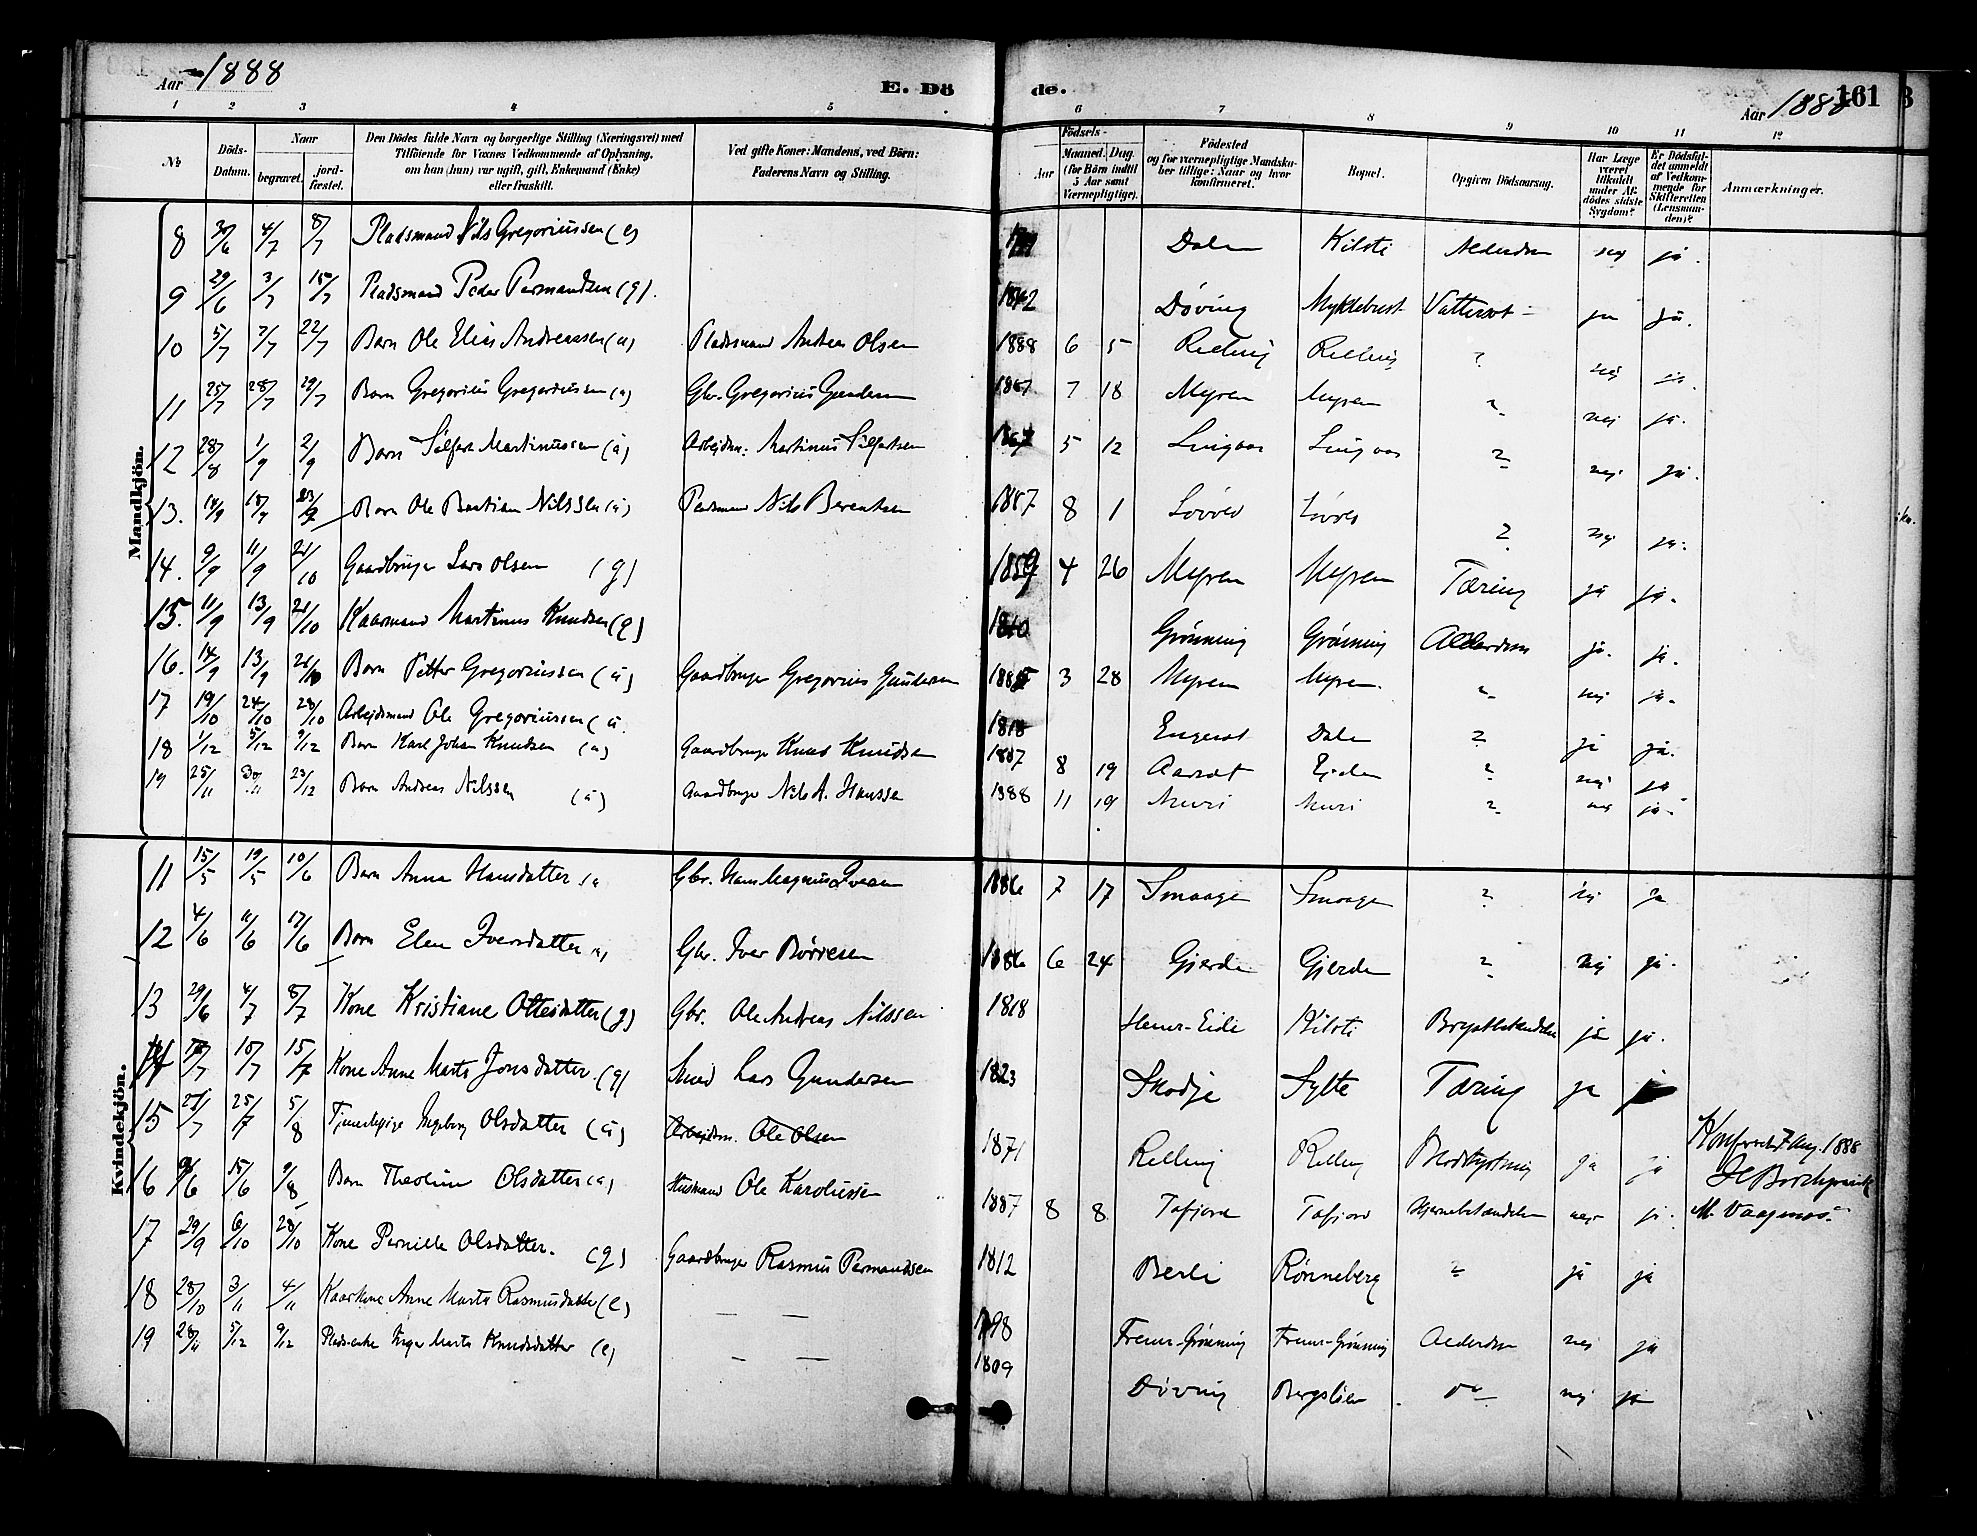 Aar 1888
E. Dö
de.
161
Aar 1888
1 2 3 4 5 6 7 8 9 10 11 12
No
Döds-Datum.
Naar
begravet.
jord-fæstet.
Den Dödes fulde Navn og borgerlige Stilling (Næringsvei) med
Tilföiende for Voxnes Vedkommende af Oplysning,
om han (hun) var ugift, gift, Enkemand (Enke)
eller fraskilt.
Ved gifte Koner: Mandens, ved Börn:
Faderens Navn og Stilling.
Födsels-
Aar
Maaned. Dag.
(for Börn indtil
5 Aar samt
Værnepligtige).
Födested
og for værnepligtige Mandska-
ber tillige: Naar og hvor
konfirmeret.
Bopæl.
Opgiven Dödsaarsag.
Har Læge
været
tilkaldt
under Af-
dödes sidste
Sygdom?
Er Dödsfal-
det anmeldt
af Vedkom-
mende for
Skifteretten
(Lensman-
den)?
Anmærkninger.
Mandkjön.
8 30/6 4/7 8/7 Pladsmand Nils Gregoriussen (e) Dale Kilsti Alderdom nej ja.
9 29/6 3/7 15/7 Pladsmand Peder Permandsen (g). 1842 Døving Myklebust Vattersot ja ja.
10 5/7 7/7 22/7 Barn Ole Elias Andreassen (u) Pladsmand Andreas Olsen 1888 6 5 Relling Relling ? nej ja.
11 25/7 28/7 29/7 Barn Gregorius Gregoriussen (u) Gbr. Gregorius Gundersen 1887 7 18 Myren Myren ? nej ja.
12 28/8 1/9 2/9 Barn Martinussen (u) Arbejdsm. Martinus 5 12 Lingaas Lingaas ? nej ja.
13. 14/9 18/9 23/9 Barn Ole Bastian Nilssen (u) Nils Berentsen 1887 8 1 ? nej ja.
14. 9/9 11/9 21/10 Gaardbruger Lars Olsen (g) 1859 4 26 Myren Myren Tæring ja ja.
15. 11/9 13/9 21/10 Kaarmand Martinus Knudsen (g) 1810 Grønning Grønning Alderdom ja. ja.
16. 14/9 13/9 21/10 Barn Petter Gregoriussen (u) Gaardbruger Gregorius Gundersen 3 28 Myren Myren. ? nej ja.
17 19/10 24/10 28/10 Arbejdsmand Ole Gregoriussen (u 1818 Engeset Dale ? ja ja.
18 1/12 5/12 9/12 Barn Karl Johan Knudsen (u) Gaardbruger Knud Knudsen 1887 8 19 Aarset ? nej ja
19 25/11 30/11 23/12 Barn Andreas Nilssen (u) Gaardbruger Nils A. Hanssen 1888 11 19 Muri Muri ? nej ja.
Kvindekjön.
11 15/5 19/5 10/6 Barn Anna Hansdatter (u Gbr. Hans Magnus Iversen 1886 7 17 Smaage Smaage ? nej ja
12 4/6 11/6 17/6 Barn Elen Iversdatter (u) Gbr. Iver Børresen 1886 6 24 Gjerde Gjerde ? nej ja.
13 29/6 4/7 8/7 Kone Kristiane Ottesdatter (g) Gbr. Ole Andreas Nilssen 1818 Kilsti Brystbetændelse ja ja.
14 10/7 15/7 Kone Anne Marta Jonsdatter (g) Smed Lars Gundersen 1823 Skodje Sylte Tæring ja
15 25/7 5/8 Tjenestepige Ingeborg Olsdatter (u) Arbejdsm. Ole Olsen 1871 Relling Relling Blodstyrtning ja ja 7 Aug. 1888
16 15/6 9/8 Barn Theoline Olsdatter (u) Husmand Ole Karoliussen 1887 8 8 Tafjord Tafjord Hjernebetændelse nej ja. M. Vaagenes.
17 29/9 6/10 28/10 Kone Pernille Olsdatter. (g) Gaardbruger Rasmus Permandsen 1812 Berli Rønneberg ? ja ja
18 28/10 3/11 4/11 Kaarkone Anne Marta Rasmusdatter (e) — — 1798 Frem-Grønning Frem-Grønning Alderdom nej ja
19 28/11 5/12 9/12 Pladsenke Inger Marta Knudsdatter (e) — — 1809 Døving Bergslien do nej ja